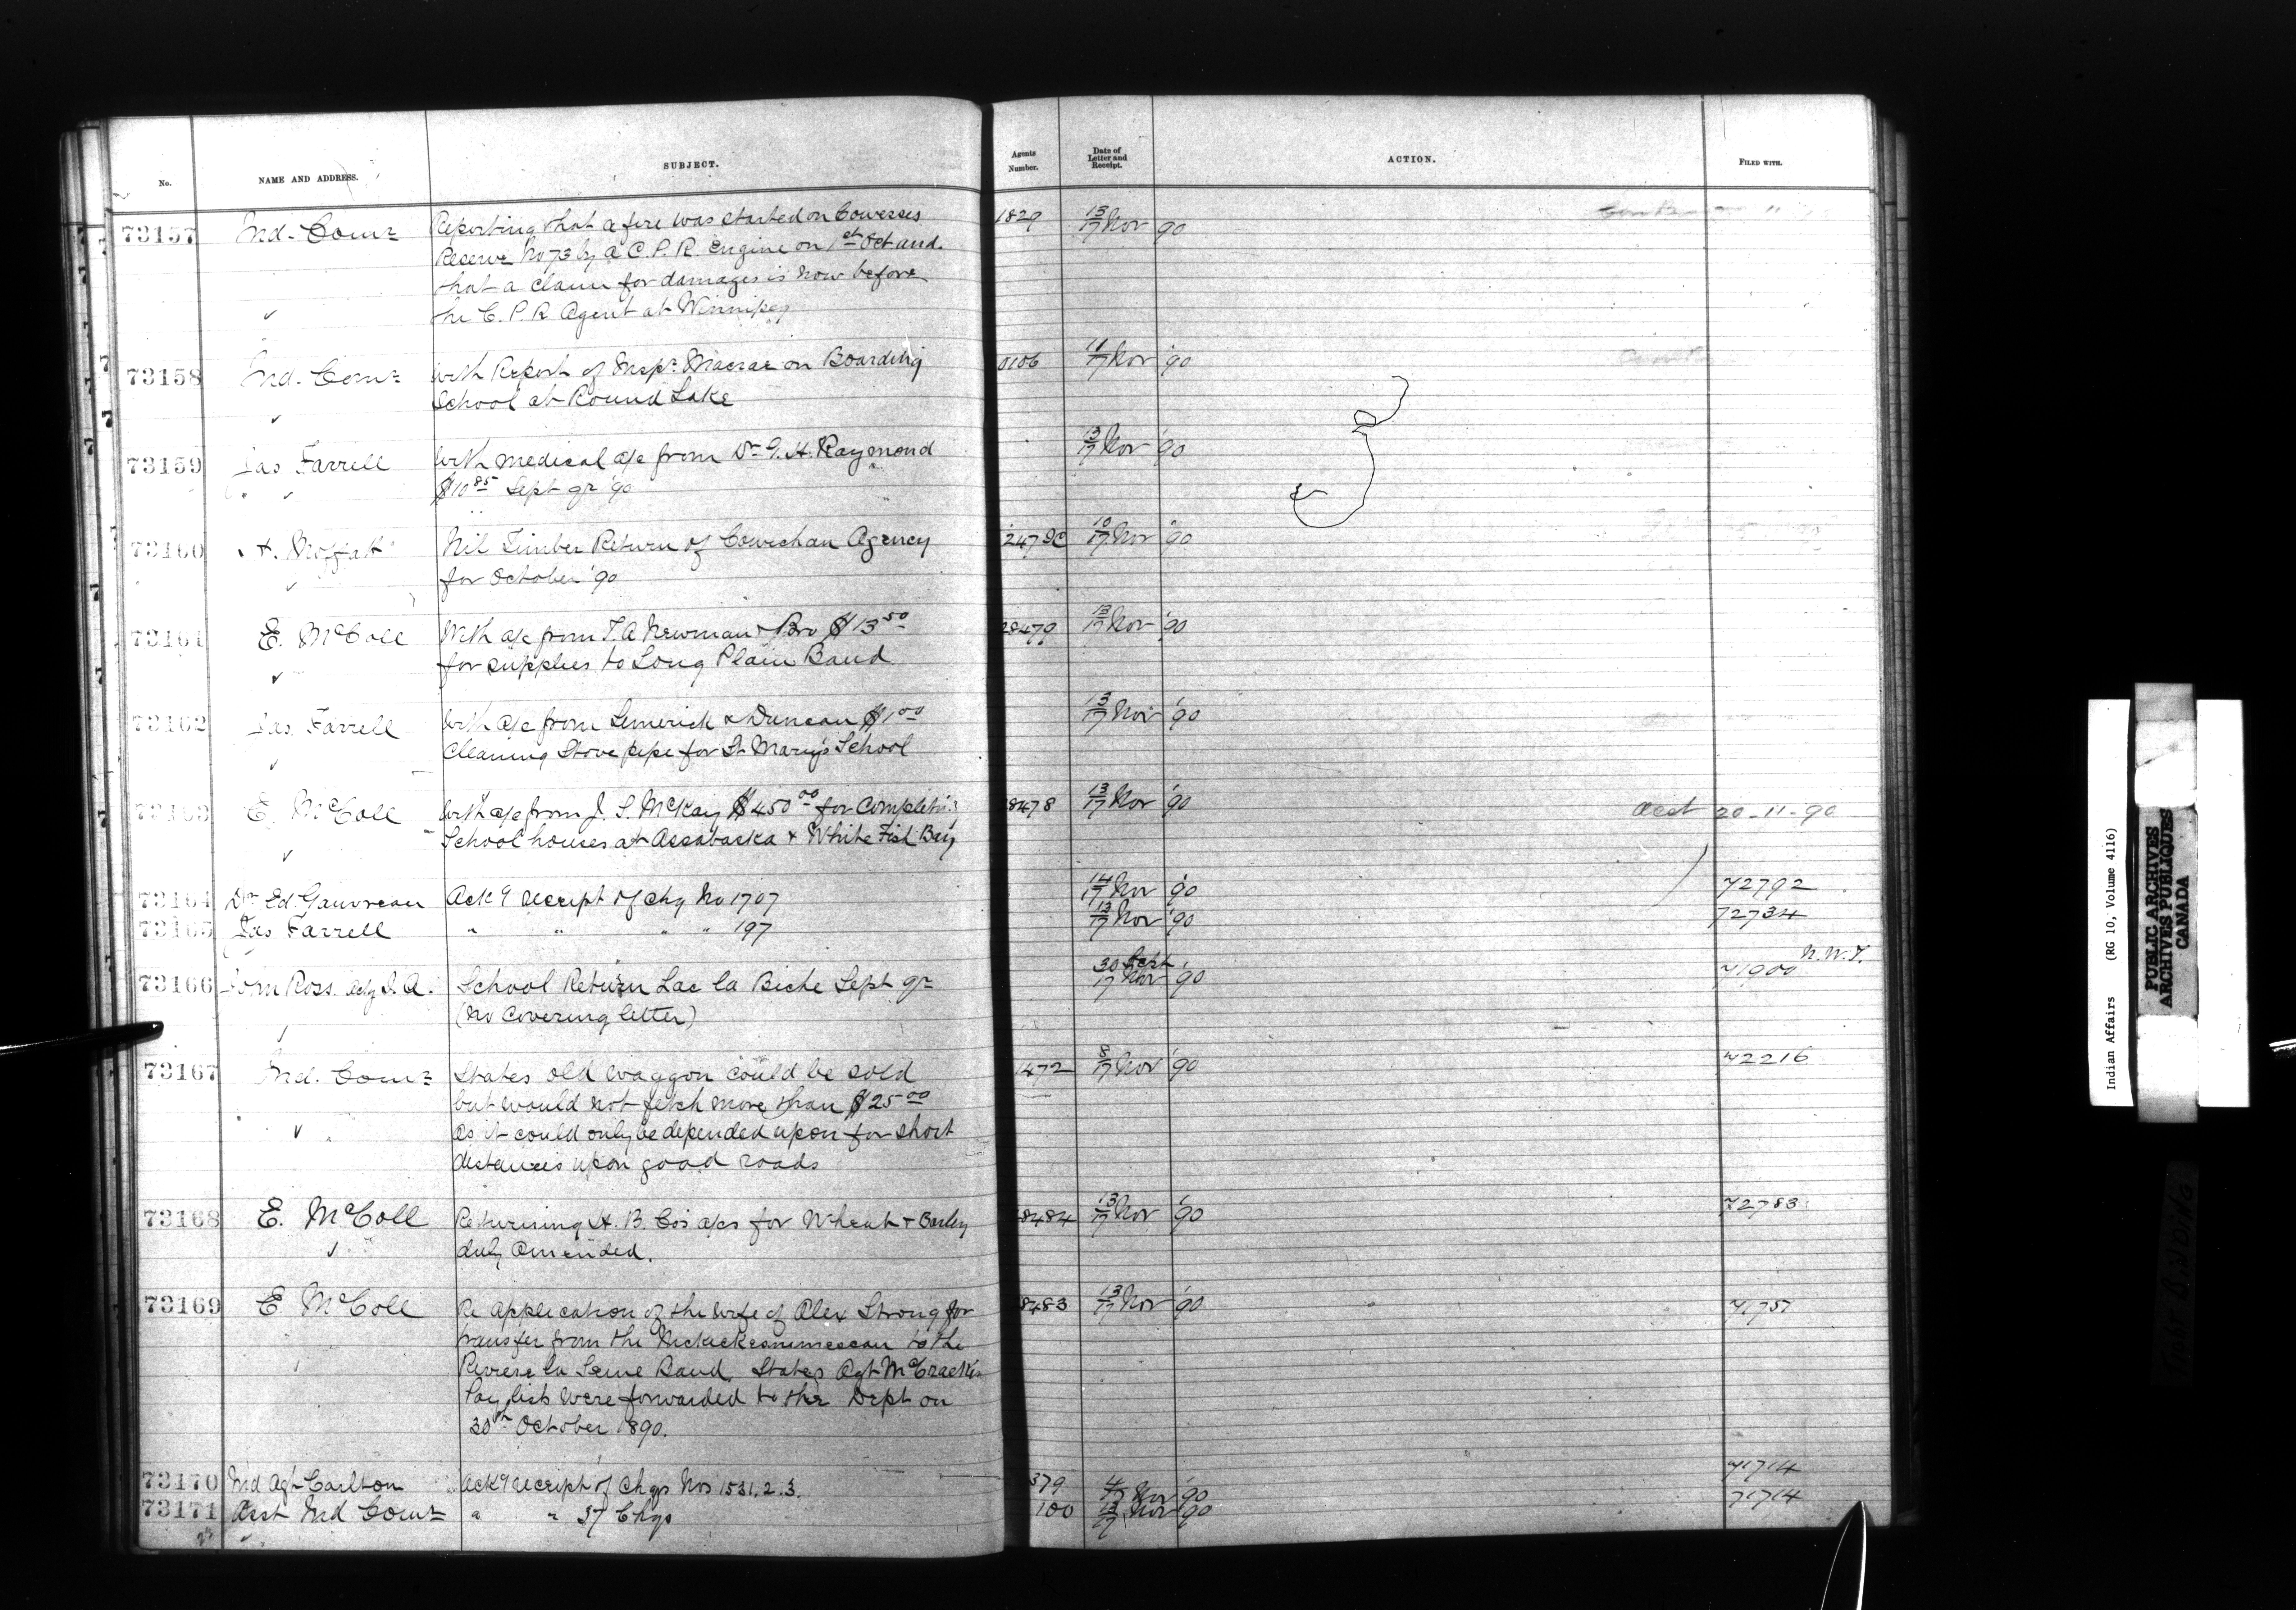 No. NAME AND ADDRESS. SUBJECT. Agents Number. Date of Letter and Receipt. ACTION. FILED WITH.
73157 Ind. Comr Reporting that a fire was started on Cowesses 1829 13/17 Nov '90
Reserve No 73 by a C.P.R. Engine on 1st Oct and
that a claim for damages is now before
the C.P.R Agent at Winnipeg
73158 Ind. Comr With Report of Inspr Macrae on Boarding 0106 11/17 Nov '90
School at Round Lake
73159 Jas Farrell With medical a/c from Dr G. H. Raymond 13/17 Nov '90
$10 85 Sept qr '90
73160 H. Moffatt Nil Timber Return of Cowichan Agency 10/17 Nov '90
for October '90
73161 E. McColl With a/c from T. A Newman & Bro $13 50 28479 13/17 Nov '90
for supplies to Long Plain Band
73162 Jas. Farrell With a/c from Limerick & Duncan $1 00 13/17 Nov '90
Cleaning Stove pipe for St Mary's School
73163 E. McColl With a/c from J. S. McKay $450 00 for Completing 8478 13/17 Nov '90 Acct 20-11-90
School houses at Assabaska & White Fish Bay
73164 Dr Ed. Gauvreau Ackg receipt of chq No 1707 14/17 Nov '90 72792
73165 Jas Farrell " " " " 197 13/17 Nov '90 72734
73166 John Ross actg I. A. School Return Lac la Biche Sept qr 30 Sept 17 Nov '90 71900 N.W.T.
(No Covering letter)
73167 Ind. Comr States old waggon could be sold 1472 8/17 Nov '90 72216
but would not fetch more than $25 00
as it could only be depended upon for short
distances upon good roads
73168 E. McColl Returning H. B. Co's a/cs for Wheat & Barley 8484 13/17 Nov '90 72783
duly Amended.
73169 E McColl Re application of the wife of Alex Strong for 8483 13/17 Nov '90 71751
transfer from the to the
Riviere la Seine Band. States Agt McCracken
Pay lists were forwarded to the Dept on
30th October 1890.
73170 Ind Agt Carlton Ackg receipt of Chqs Nos 1531. 2. 3. 379 4/17 Nov '90 71714
73171 Asst Ind Comr " " 37 Chqs 100 13/17 Nov '90 71714
Indian Affairs (RG 10, Volume 4116)
PUBLIC ARCHIVES
ARCHIVES PUBLIQUES
CANADA